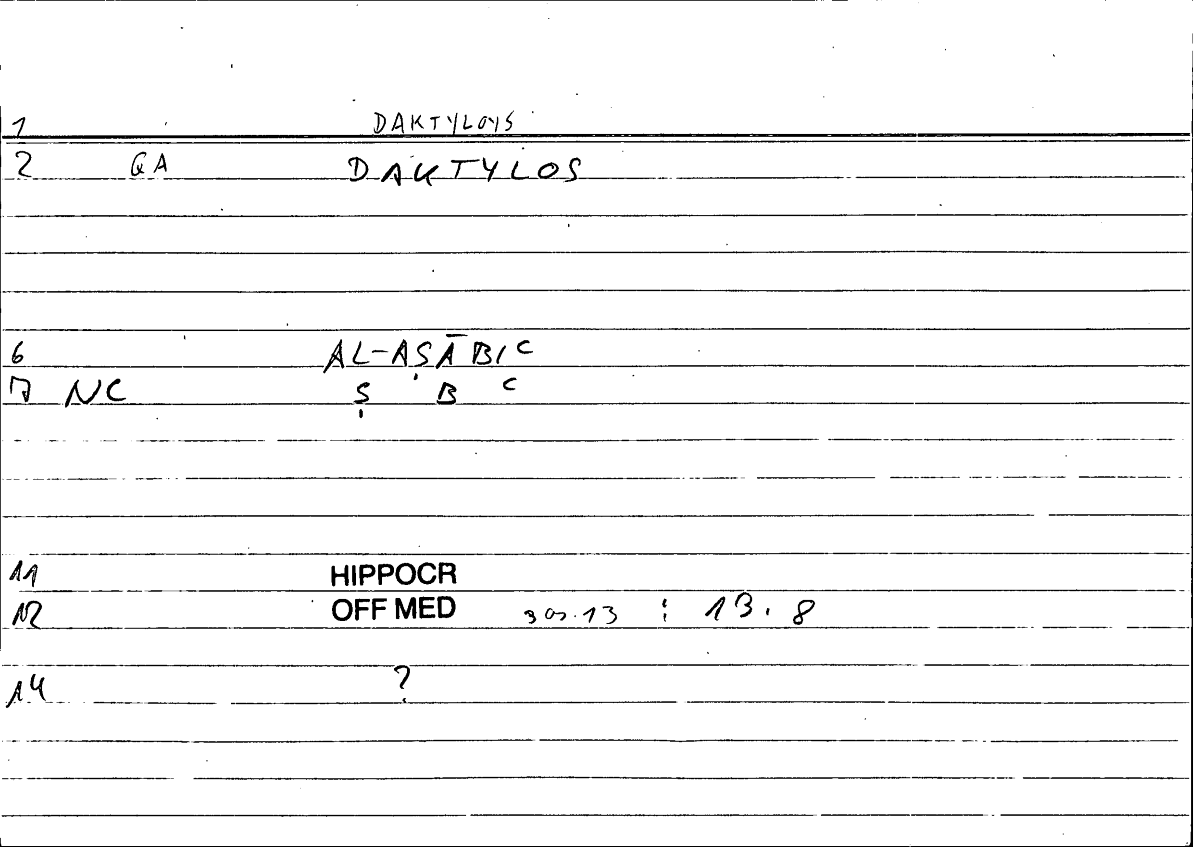 1 DAKTYLOYS
2 GA DAKTYLOS
6 AL-AṢĀBIC
7 NC Ṣ B C
11 HIPPOCR
12 OFF MED 3 : 13.8
14 ?